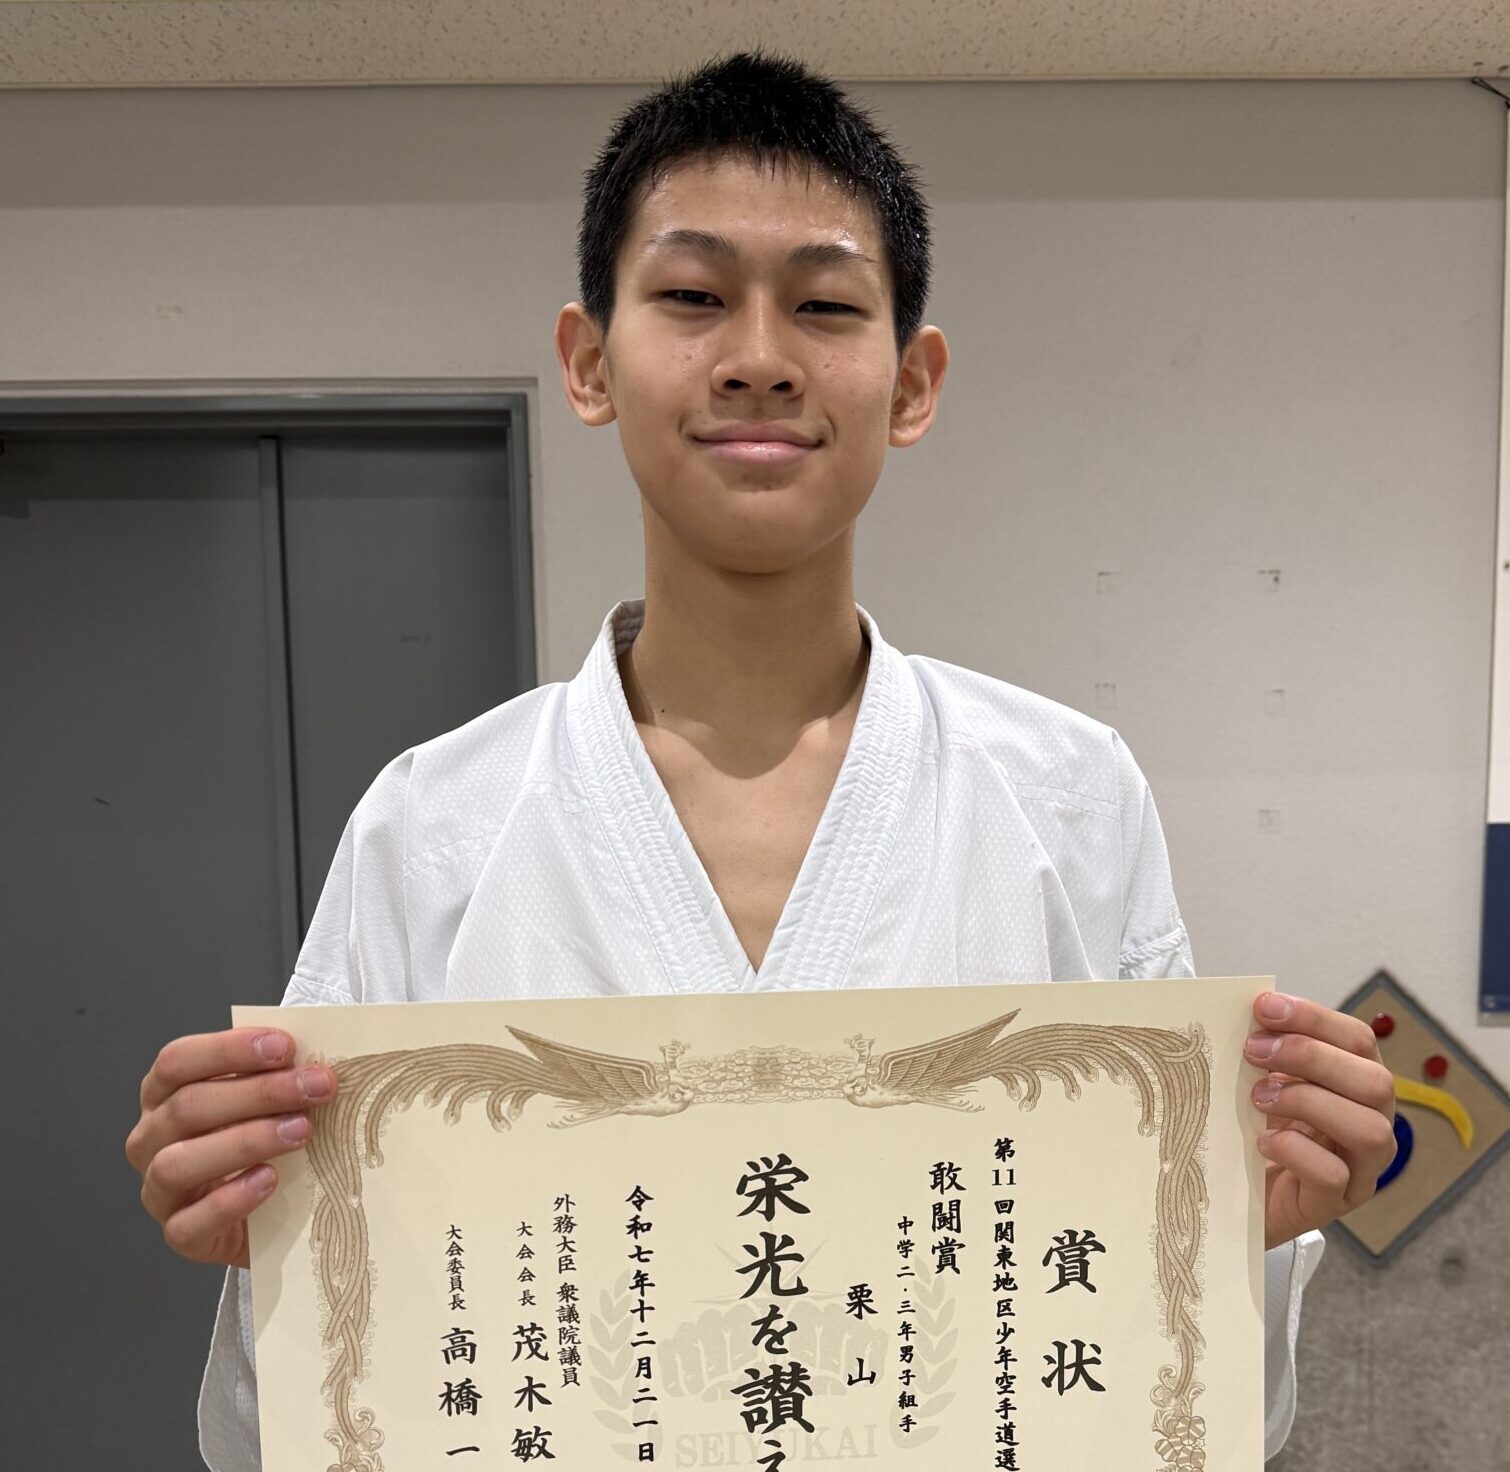 賞状
第11回関東地区少年空手道選
敢闘賞
中学二・三年男子組手
栗山
栄光を讃え
令和七年十二月二一日
外務大臣 衆議院議員
大会会長 茂木敏
大会委員長 高橋一
SEIYUKAI